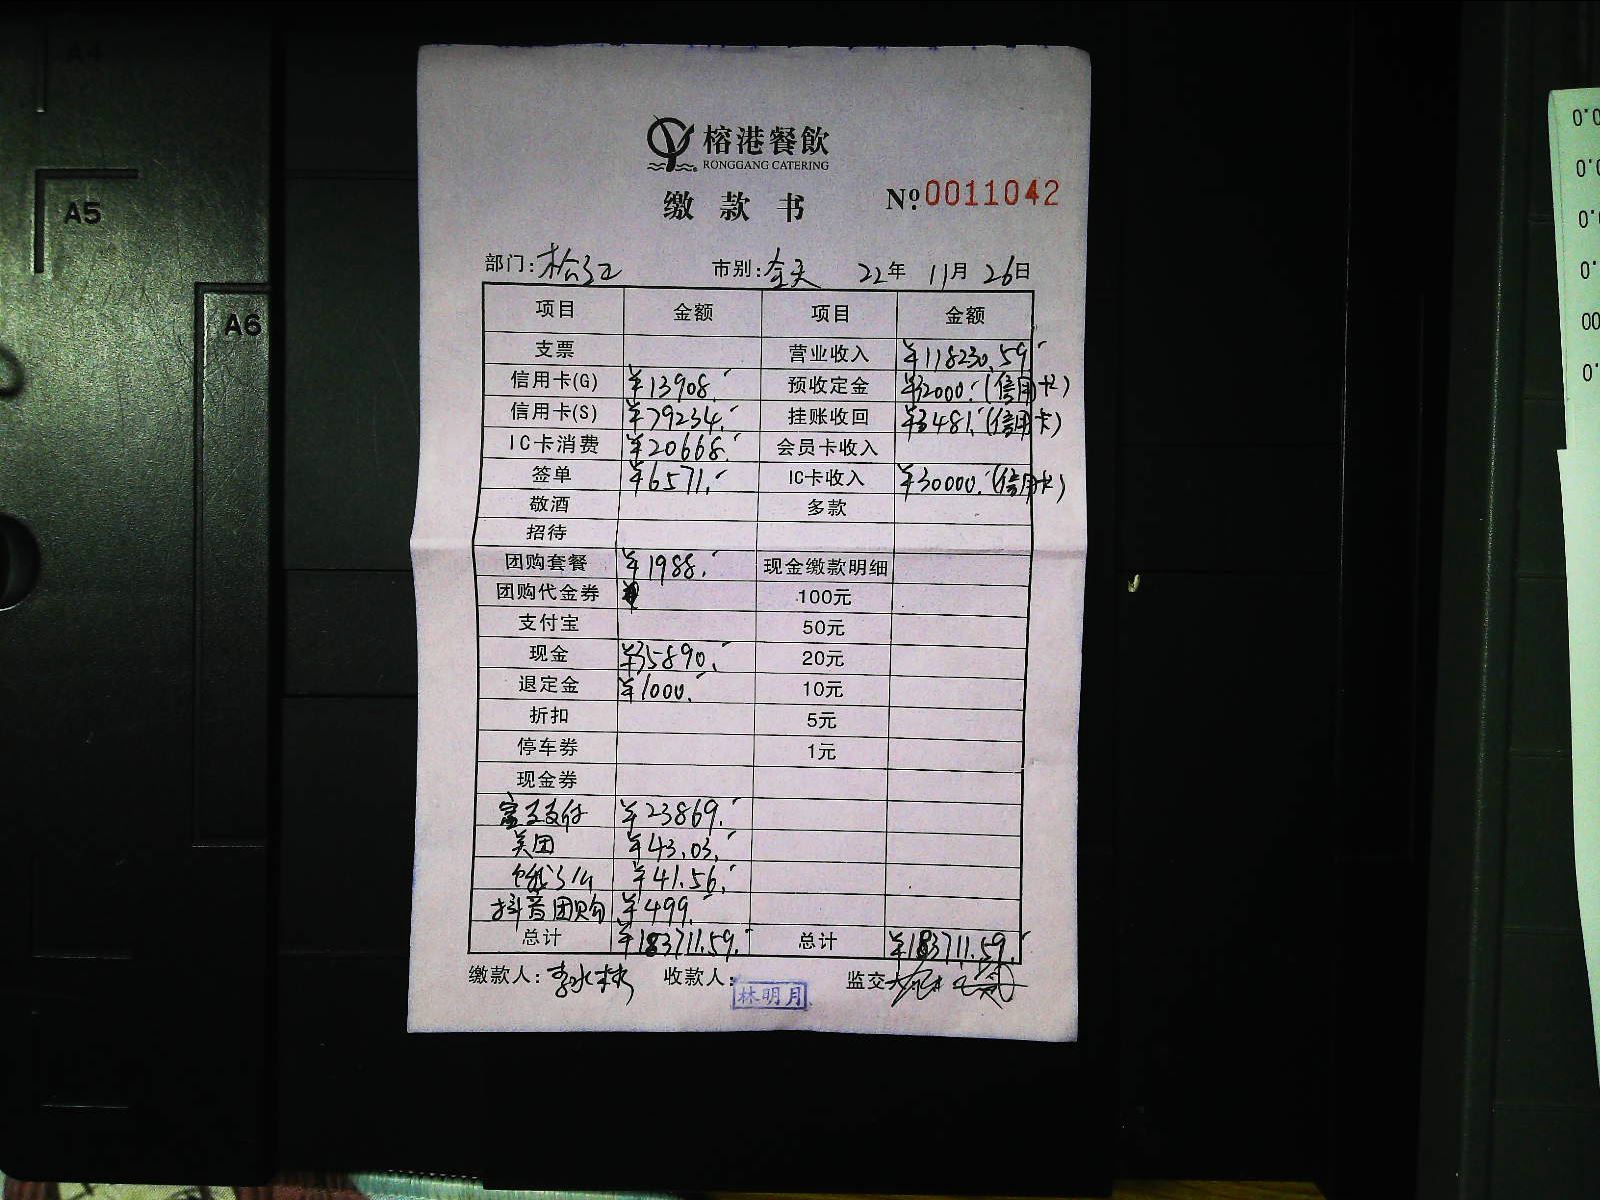 A4
A5
A6
榕港餐飲
RONGGANG CATERING
缴款书 №0011042
部门:松江 市别:全天 22年 11月 26日
项目 金额 项目 金额
支票 营业收入 ¥118230.59
信用卡(G) ¥13908. 预收定金 ¥32000.(信用卡)
信用卡(S) ¥79234. 挂账收回 ¥3481.(信用卡)
IC卡消费 ¥20668. 会员卡收入
签单 ¥6571. IC卡收入 ¥30000.(信用卡)
敬酒 多款
招待
团购套餐 ¥1988. 现金缴款明细
团购代金券 100元
支付宝 50元
现金 ¥35890. 20元
退定金 ¥1000. 10元
折扣 5元
停车券 1元
现金券
支付 ¥23869.
美团 ¥43.03.
饿了么 ¥41.56.
抖音团购 ¥499.
总计 ¥183711.59. 总计 ¥183711.59.
缴款人:李水林 收款人: 林明月 监交